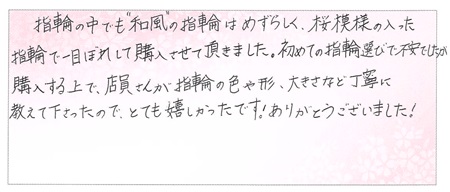 指輪の中でも"和風"の指輪はめずらしく、桜模様の入った
指輪で一目ぼれして購入させて頂きました。初めての指輪選びで不安でしたが
購入する上で、店員さんが指輪の色や形、大きさなど丁寧に
教えて下さったので、とても嬉しかったです!ありがとうございました!